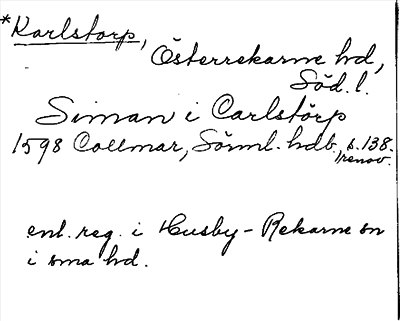 *Karlstorp,
Österrekarne hd,
Söd. l.
Siman i Carlstörp
1598 Collmar, Sörml. hdb, s. 138.
renov.
enl. reg. i Husby-Rekarne sn
i sma hd.